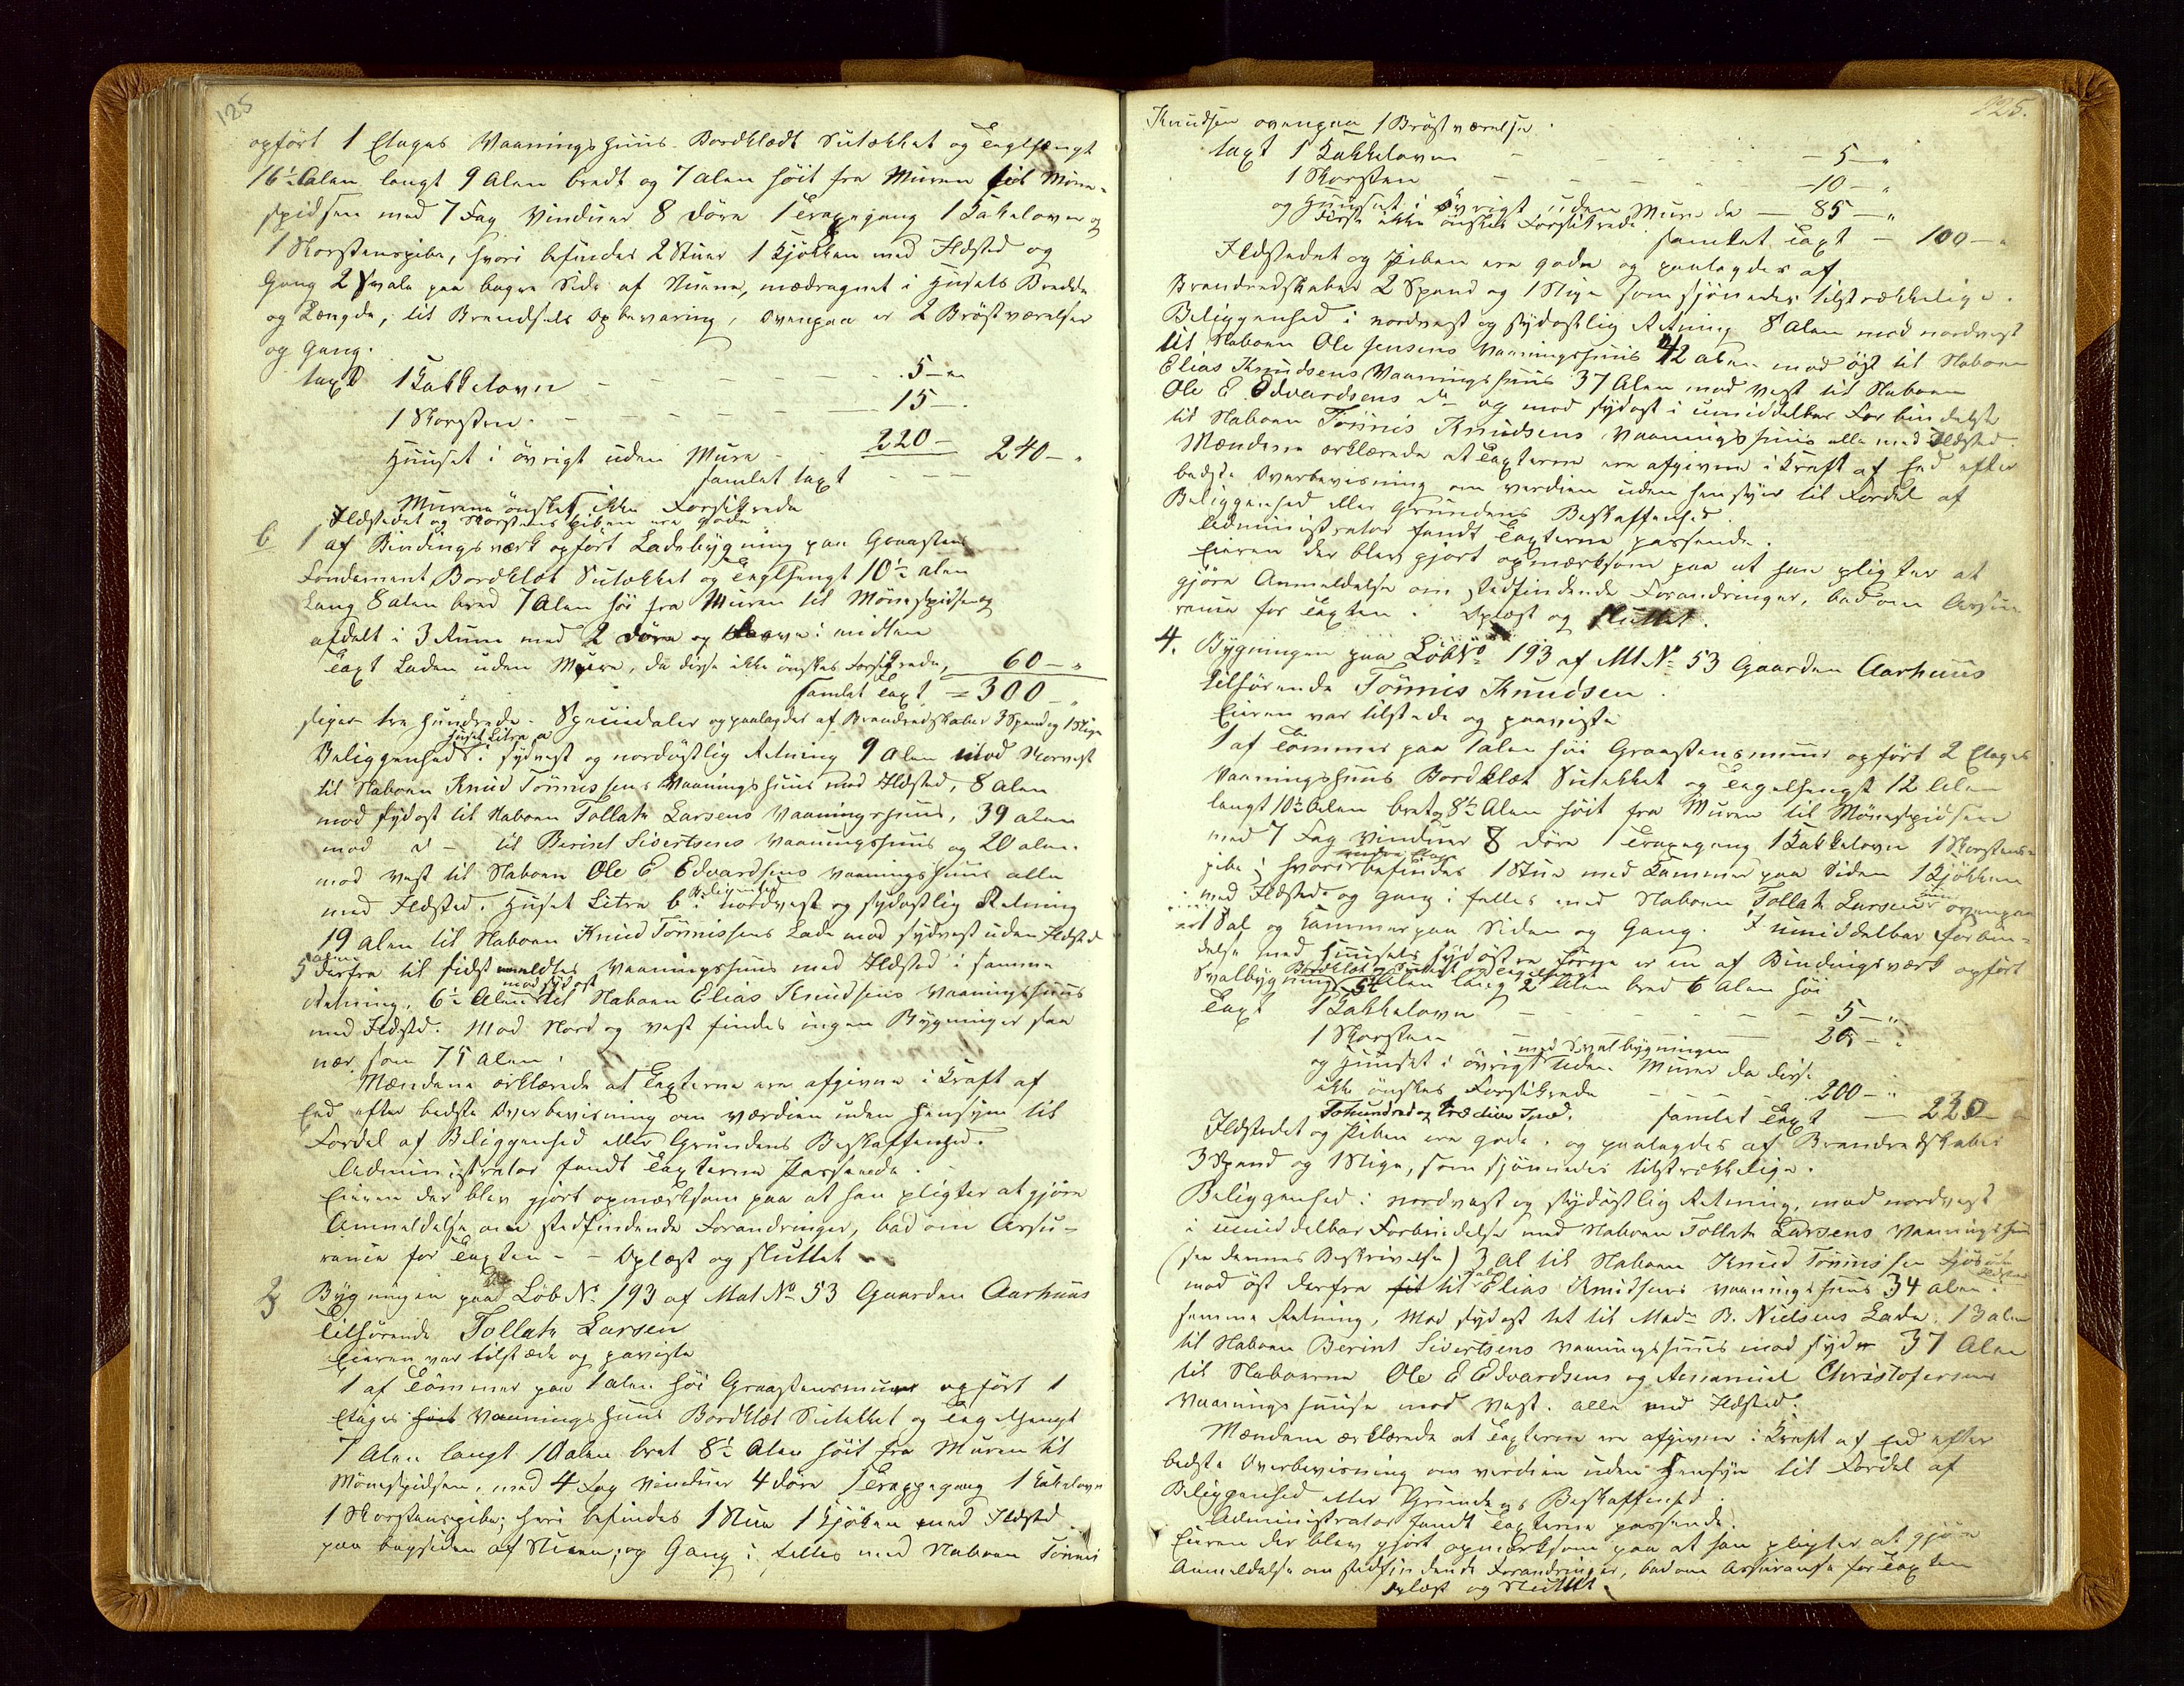 125
opført 1 Etages Vaaningshuus Bordklædt Sutækket og Teglhængt
16½ Alen langt 9 Alen bredt og 7 Alen höit fra Muren til Möne-
spidsen med 7 Fag Vinduer 8 Döre 1 Trapegang 1 Kakelovn og
1 Skorstenspibe, hvori befindes 2 Stuer 1 Kjökken med Ildsted og
Gang 2 Svale paa bagre Side af Stuerne, meddraget i Husets Bredde
og Længde, til Brændsels Opbevaring, ovenpaa er 2 Bröstværelser
og Gang.
taxt 1 Kakkelovn - - - 5 - "
1 Skorsten - - - 15 -
Huuset i övrigt uden Mure - 220 -
samlet taxt - - - 240 - "
Murene önskes ikke Forsikrede
Ildstedet og Skorstenspiben ere gode
b 1 af Bindingsværk opført Ladebygning paa Graasteens
Fondament, Bordklæt Sutækket og Teglhængt 10½ Alen
Lang 8 Alen bred 7 Alen höi fra Muren til Mönespidsen og
afdelt i 3 Rum med 2 Döre og Laave i midten
Taxt Laden uden Mure, da disse ikke önskes Forsikrede, 60 - "
samlet Taxt = 300 - "
siger tre hundrede Speciedaler og paalagdes af Brandredskaber 3 Spand og 1 Stige
Huset Litra a
Beliggenhed i sydvest og nordöstlig Retning 9 Alen mod Norvest
til Naboen Knud Tönnessens Vaaningshuus med Ildsted, 8 Alen
mod sydost til Naboen Tollak Larsens Vaaningshuus, 39 alen
mod d - til Berint Sivertsens Vaaningshuus og 20 alen
mod vest til Naboen Ole E Edvardsens Vaaningshuus alle
med Ildsted. Huset Litra b beliggenhed i nordvest og sydostlig Retning
19 Alen til Naboen Knud Tönnissens Lade mod sydvest uden Ildsted
5 alen derfra til sidstmeldtes Vaaningshuus med Ildsted i samme
Retning. 6½ Alen mod sydost til Naboen Elias Knudsens Vaaningshuus
med Ildsted. Mod Nord og vest findes ingen Bygninger saa
nær som 75 Alen.
Mændene erklærede at Taxterne ere afgivne i Kraft af
Eed efter bedste Overbevisning om værdien uden Hensyn til
Fordel af Beliggenhed eller Grundens Beskaffenhed.
Administrator fandt Taxterne Passende.
Eieren der blev gjort opmærksom paa at han pligter at gjöre
Anmeldelse om stedfindende Forandringer, bad om Assu-
rance for Taxten - - Oplæst og sluttet
3 Bygningen paa Löb No 193 af Mat No 53 Gaarden Aarhuus
tilhörende Tollak Larsen
Eieren var tilstæde og paaviste
1 af Tömmer paa 1 alen höi Graasteensmuur opført 1
Etages Vaaningshuus Bordklæt Sutækket og Tegelhængt
7 Alen langt 10 alen bret 8½ Alen höit fra Muren til
Mönespidsen, med 4 Fag Vinduer 4 Döre 1 Trappegang 1 Kakelovn
1 Skorstenspibe; hvori befindes 1 Stue 1 Kjöken med Ildsted
paa bagsiden af Stuen, og Gang i felles med Naboen Tönnis
125.
Knudsen ovenpaa 1 Bröstværelse.
taxt 1 Kakkelovn - - - 5 - "
1 Skorsten - - - 10 - "
og Huuset i övrigt uden Mure da - 85 - "
disse ikke önskes Forsikrede. samlet Taxt - 100 - "
Ildstedet og Piben ere gode og paalagdes af
Brandredskaber 2 Spand og 1 Stige som skjönnedes tilstrækkelige.
Beliggenhed i nordvest og sydostlig Retning 8 Alen mod nordvest
til Naboen Ole Jensens Vaaningshuus 42 alen mod öst til Naboen
Elias Knudsens Vaaningshuus 37 Alen mod Vest til Naboen
Ole E. Edvardsens do og mod sydost i umiddelbar Forbindelse
til Naboen Tönnis Knudsens Vaaningshuus alle med Ildsted.
Mændene erklærede at Taxterne ere afgivne i Kraft af Eed efter
bedste Overbevisning om verdien uden hensyn til Fordel af
Beliggenhed eller Grundens Beskaffenhed.
Administrator fandt Taxterne passende.
Eieren der blev gjort opmærksom paa at han pligter at
gjöre Anmeldelse om stedfindende Forandringer, bad om Assu
rance for Taxten. Oplæst og sluttet.
4. Bygningen paa Löb No 193 af Mt No 53 Gaarden Aarhuus
tilhörende Tönnis Knudsen.
Eieren var tilstede og paaviste
1 af Tömmer paa 1 alen höi Graasteensmuur opført 2 Etages
Vaaningshuus Bordklæt Sutækket og Tegelhengt 12 Alen
langt 10½ Alen bret og 8½ Alen höit fra Muren til Mönespidsen
med 7 Fag Vinduer 8 Döre 1 Trapegang 1 Kakkelovn 1 Skorstens-
pibe; hvori befindes 1 Stue med Kammer paa Siden 1 Kjökken
med Ildsted og Gang i felles med Naboen Tollak Larsen ovenpaa
et Sal og Kammer paa Siden og Gang. I umiddelbar Forbin-
delse med Huusets sydöstre Længe er en af Bindingsværk opført
Bordklæt og Sutækt og Tegelhengt
Svalbygning Alen lang 2 Alen bred 6 Alen höi
Taxt 1 Kakkelovn - - - 5 - "
1 Skorsten - - - 25 - "
og Huuset i övrigt med Svalbygningen uden Murer da disse
ikke önskes Forsikrede - - 200 - "
Tohundred og tredive Spd. samlet Taxt - 230 -
Ildstedet og Piben ere gode. og paalagdes af Brandredskaber
3 Spand og 1 Stige, som skjönnedes tilstrækkelige.
Beliggenhed i nordvest og sydöstlig Retning, mod nordvest
i umiddelbar Forbindelse med Naboen Tollak Larsens Vaaningshuus
(see dennes Beskrivelse) 3 Al til Naboen Knud Tönnissen Sjöbu
mod öst derfra til Elias Knudsens Vaaningshuus 34 alen i
samme Retning, Mod sydost tet til Mads B. Nielsens Lade. 13 alen
til Naboen Berint Sivertsens Vaaningshuus mod syd 37 Alen
til Naboerne Ole E Edvardsens og Christofersens
Vaaningshuuse mod Vest. alle med Ildsted.
Mændene erklærede at Taxterne ere afgivne i Kraft af Eed efter
bedste Overbevisning om verdien uden Hensyn til Fordel af
Beliggenhed eller Grundens Beskaffenhed.
Administrator fandt Taxterne passende.
Eieren der blev gjort opmærksom paa at han pligter at gjöre
Anmeldelse om stedfindende Forandringer, bad om Assurance for Taxten
Oplæst og Sluttet.